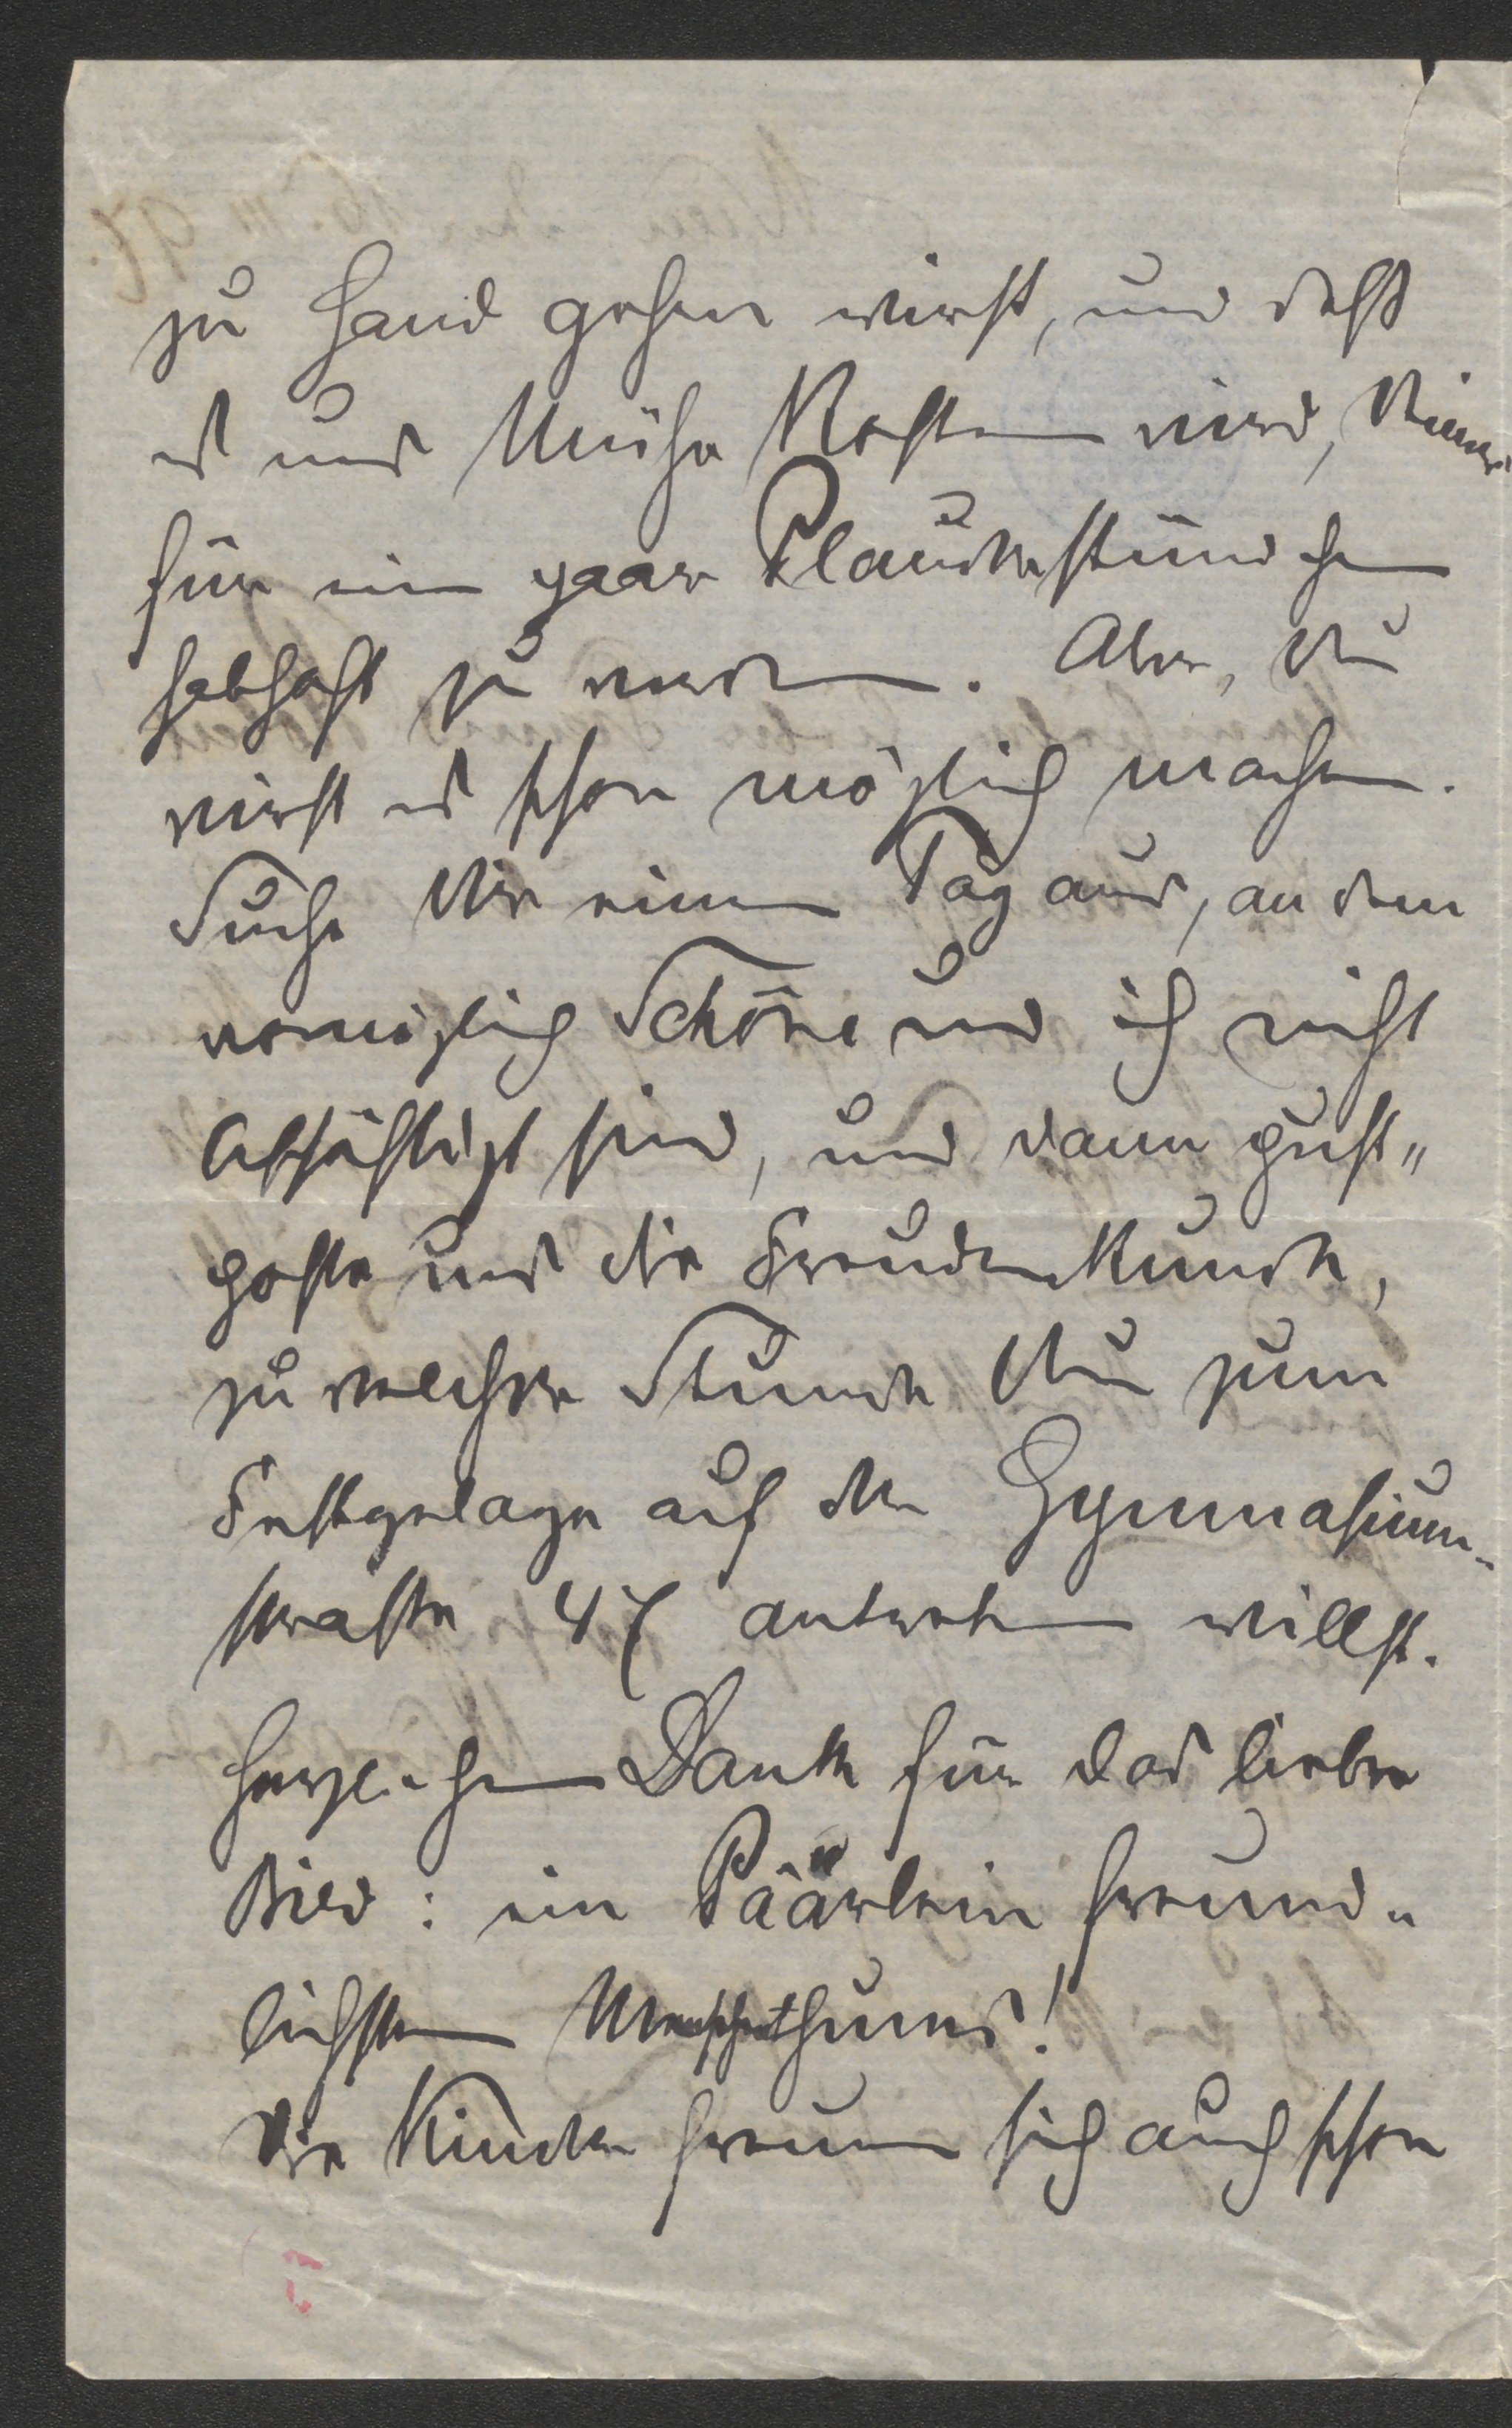 zu Hand gehen wirst, und daß
es uns Mühe kosten wird, Deiner
für ein paar Plauderstündchen
habhaft zu werden. Aber, Du
wirst es schon möglich machen.
Suche Dir einen Tag aus, an dem
womöglich Schöne und ich nicht
beschäftigt sind, und dann
uns die Freudenkunde,
zu welcher Stunde Du zum
Festgelage auf der Gymnasium-
straße 47 antreten willst.
Herzlichen Dank für das liebe
Bild: ein Päärlein freund-
lichsten Menschenthums!
Die Kinder freuen sich auch schon